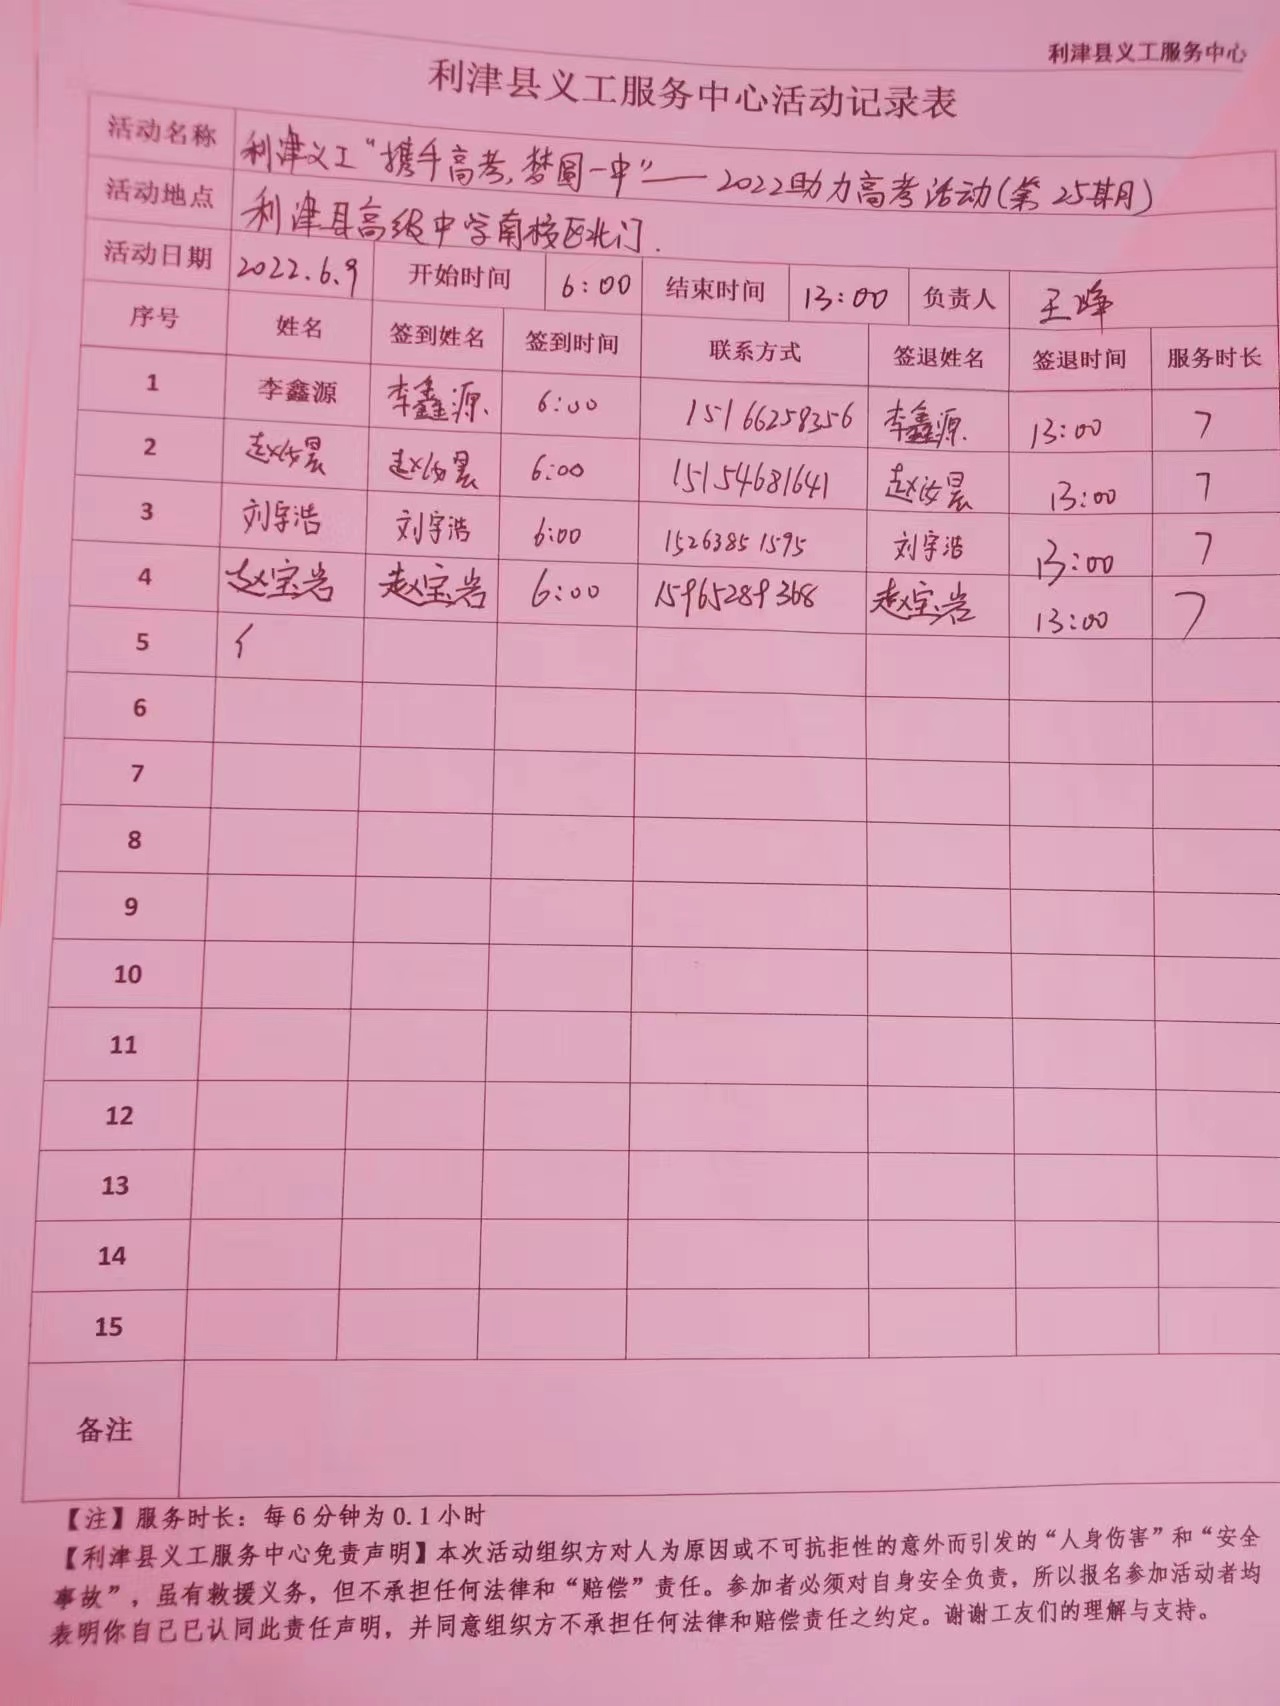 利津县义工服务中心
利津县义工服务中心活动记录表
活动名称 利津义工“携手高考,梦圆一中”——2022助力高考活动(第25期)
活动地点 利津县高级中学南校区北门.
活动日期 2022.6.9 开始时间 6:00 结束时间 13:00 负责人 王峰
序号 姓名 签到姓名 签到时间 联系方式 签退姓名 签退时间 服务时长
1 李鑫源 李鑫源 6:00 15166258356 李鑫源 13:00 7
2 赵汝晨 赵汝晨 6:00 15154681641 赵汝晨 13:00 7
3 刘宇浩 刘宇浩 6:00 15263851595 刘宇浩 13:00 7
4 赵宝岩 赵宝岩 6:00 15965289368 赵宝岩 13:00 7
5
6
7
8
9
10
11
12
13
14
15
备注
【注】服务时长：每6分钟为0.1小时
【利津县义工服务中心免责声明】本次活动组织方对人为原因或不可抗拒性的意外而引发的“人身伤害”和“安全
事故”，虽有救援义务，但不承担任何法律和“赔偿”责任。参加者必须对自身安全负责，所以报名参加活动者均
表明你自己已认同此责任声明，并同意组织方不承担任何法律和赔偿责任之约定。谢谢工友们的理解与支持。